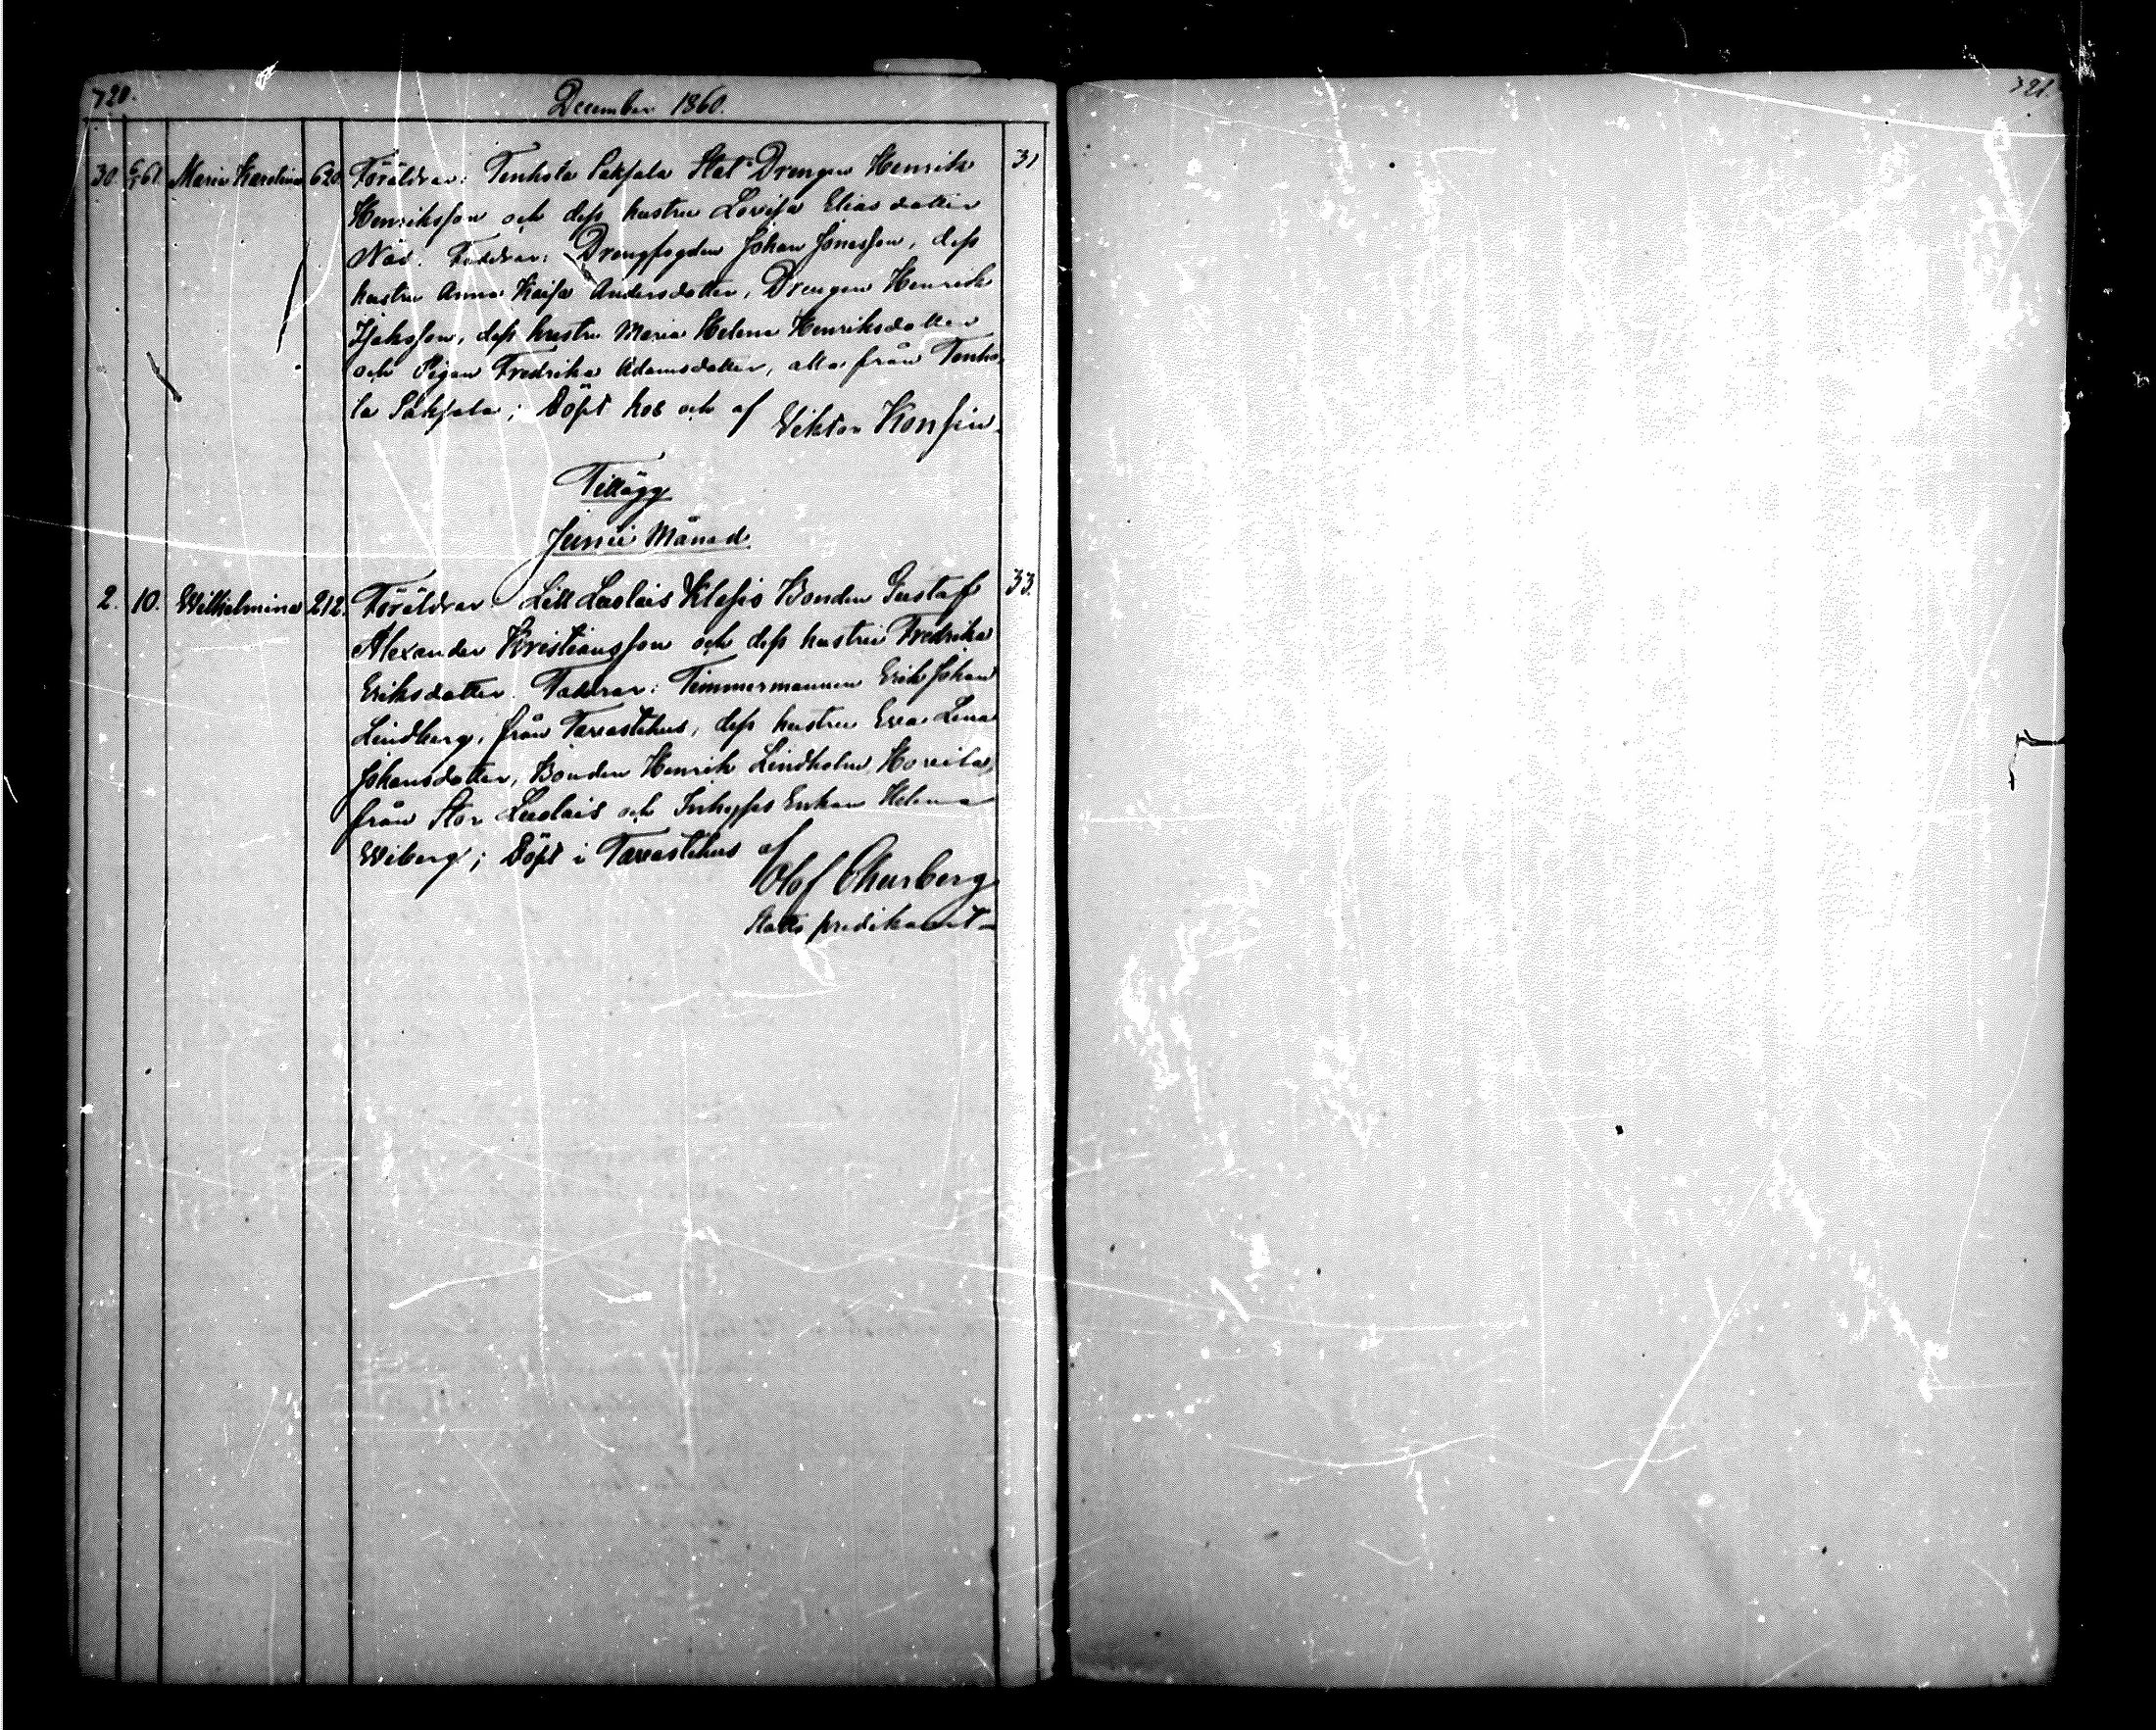 720.
December 1860.
30. 6/1 61. Maria Karolina 620. Föräldrar: Tenhola Sakjala Stat Drengen Henrik 31
Henriksson och dess hustru Lovisa Eliasdotter
Näs. Faddrar: Drengfogden Johan Jonasson, dess
hustru Anna Kaisa Andersdotter, Drengen Henrik
Isaksson, dess hustru Maria Helena Henriksdotter
och Pigan Fredrika Adamsdotter, alla från Tenho-
la Sakjala; Döpt hos och af
Viktor Konsin.
Tillägg
Junii Månad
2. 10. Wilhelmina 212. Föräldrar: Lill Luolais Klasis Bonden Gustaf 33.
Alexander Kristiansson och dess hustru Fredrika
Eriksdotter. Faddrar: Timmermannen Erik Johan
Lindberg, från Tavastehus, dess hustru Eva Lena
Johansdotter, Bonden Henrik Lindholm,
från Stor Luolais och Inhyses Enkan Helena
Wiberg; Döpt i Tavastehus af
Olof Churberg
Slotts predikant
721.